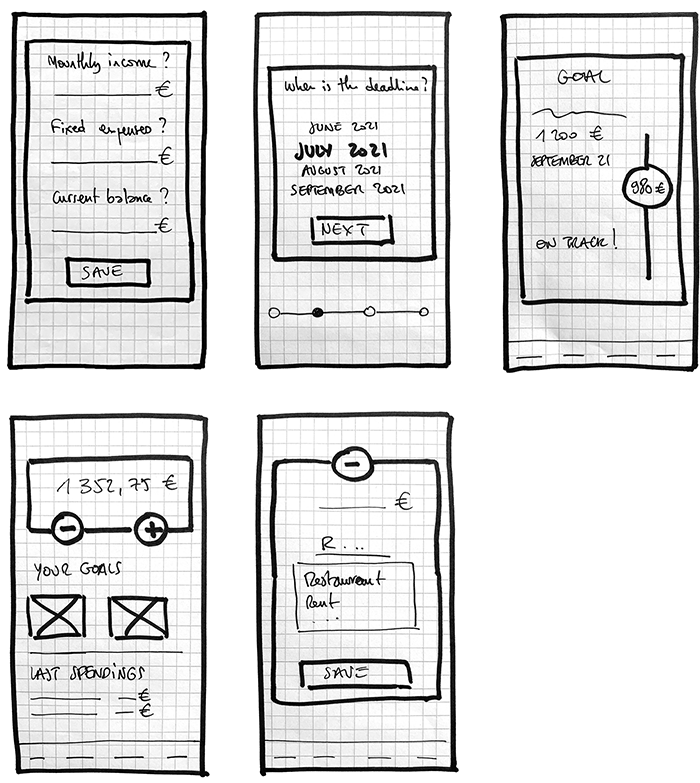 Monthly income ?
€
Fixed expenses ?
€
Current balance ?
€
SAVE
When is the deadline?
JUNE 2021
JULY 2021
AUGUST 2021
SEPTEMBER 2021
NEXT
GOAL
1 200 €
SEPTEMBER 21
980 €
ON TRACK!
1 352,75 €
- +
YOUR GOALS
LAST SPENDINGS
€
€
-
€
R...
Restaurant
Rent
...
SAVE